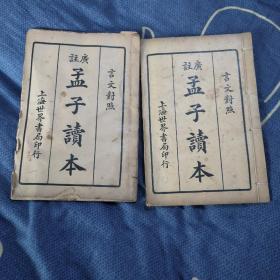 言文對照
廣註
孟子讀本
上海世界書局印行
言文對照
廣註
孟子讀本
上海世界書局印行